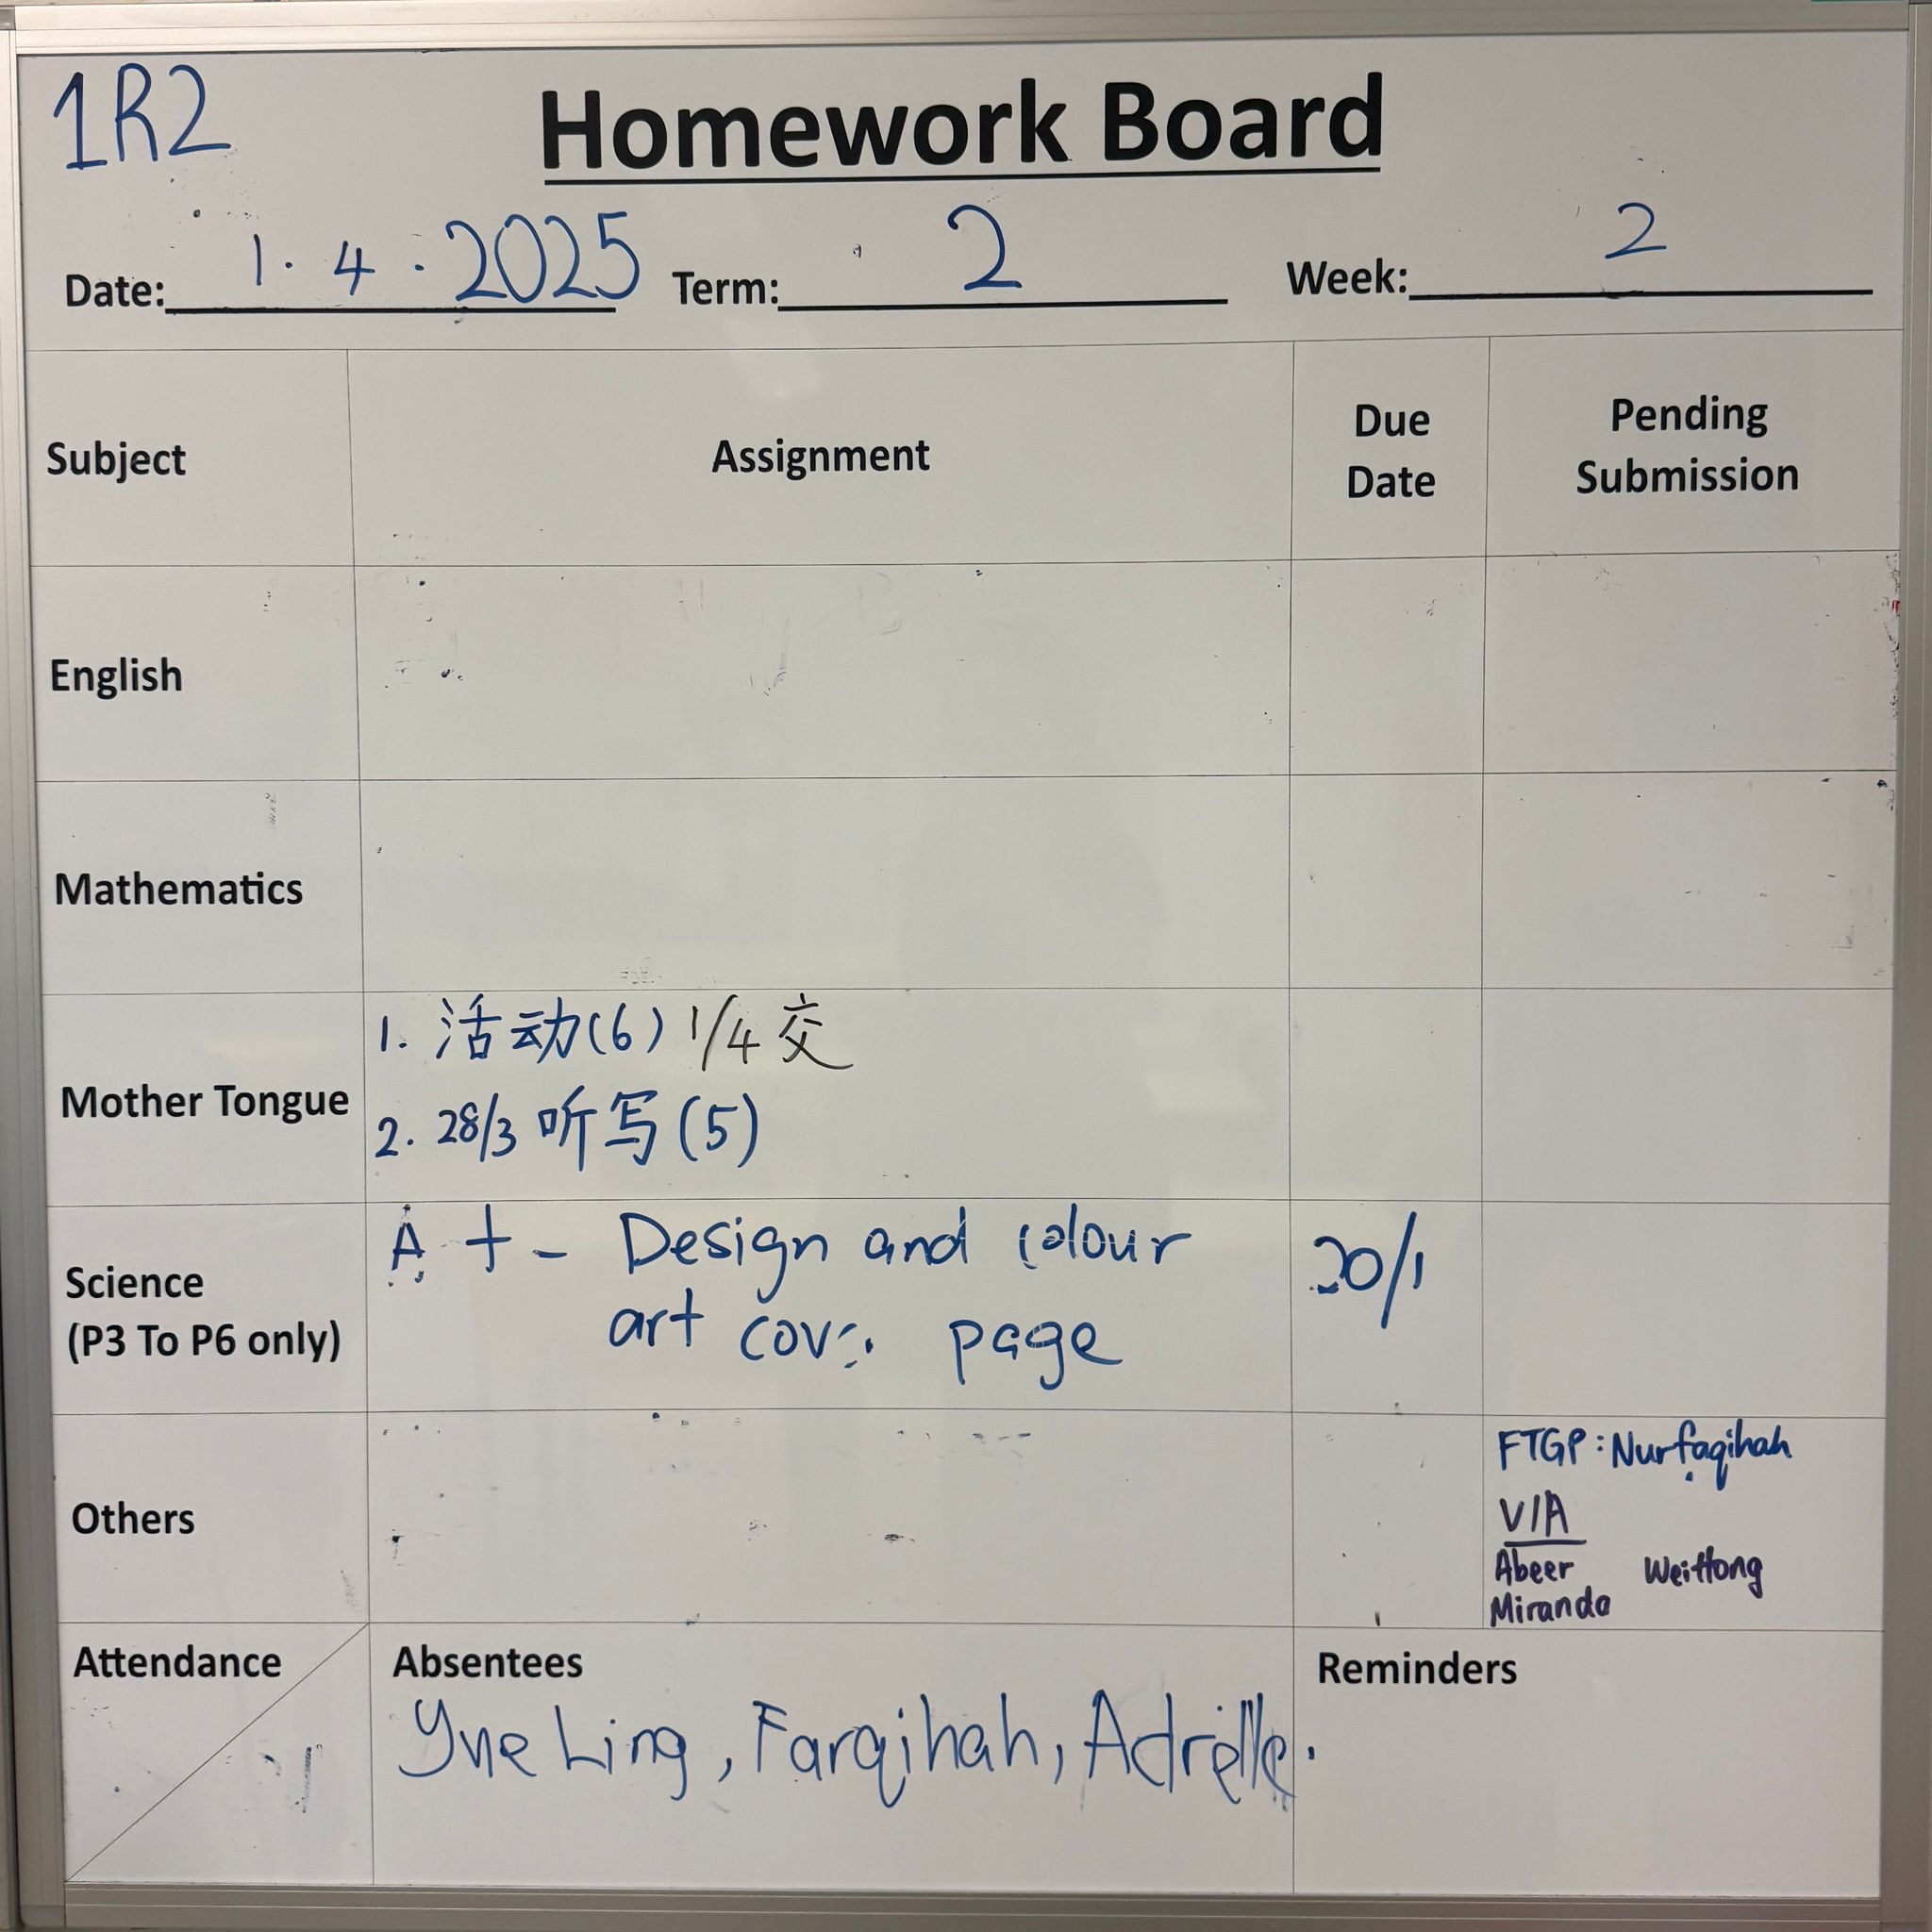 1R2
Homework Board
Date: 1.4.2025 Term: 2 Week: 2
Subject
Assignment
Due
Date
Pending
Submission
English
Mathematics
Mother Tongue
1. 活动(6) 1/4 交
2. 28/3 听写(5)
Science
(P3 To P6 only)
A t - Design and colour
art page
20/1
Others
FTGP: Nurfaqihah
VIA
Abeer Weittong
Miranda
Attendance
Absentees
Yue Ling, Farqihah, Adrielle.
Reminders